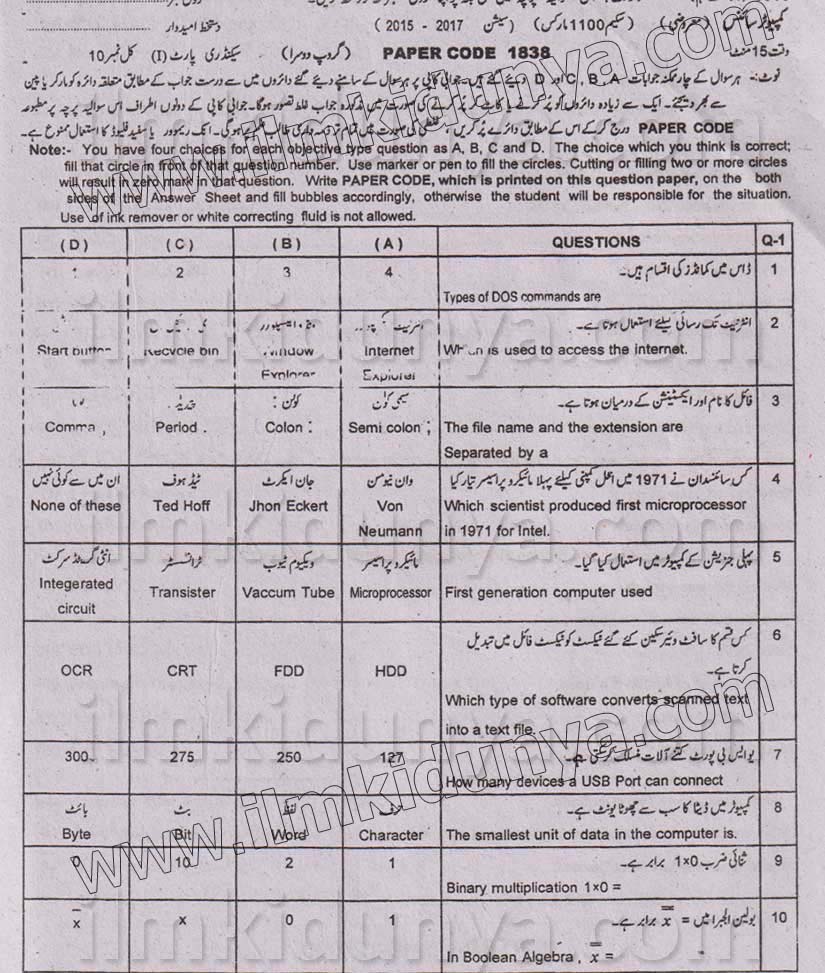 کمپیوٹر سائنس (معروضی) (سکیم 1100 مارکس) (سیشن 2015 - 2017) دستخط امیدوار
وقت 15 منٹ PAPER CODE 1838 (گروپ دوسرا) سیکنڈری پارٹ (I) کل نمبر 10
نوٹ:- ہر سوال کے چار ممکنہ جوابات A ، B ، C اور D دیئے گئے ہیں۔ جوابی کاپی پر ہر سوال کے سامنے دیئے گئے دائروں میں سے درست جواب کے مطابق متعلقہ دائرہ کو مارکر یا پین
سے بھر دیجئے۔ ایک سے زیادہ دائروں کو پُر کرنے یا کاٹ کر پُر کرنے کی صورت میں مذکورہ جواب غلط تصور ہوگا۔ جوابی کاپی کے دونوں اطراف اس سوالیہ پرچہ پر مطبوعہ
PAPER CODE درج کر کے اس کے مطابق دائرے پُر کریں، کی صورت میں تمام تر ذمہ داری طالب علم پر ہوگی۔ انک ریموور یا سفید فلیوڈ کا استعمال ممنوع ہے۔
Note:- You have four choices for each objective type question as A, B, C and D. The choice which you think is correct;
fill that circle in front of that question number. Use marker or pen to fill the circles. Cutting or filling two or more circles
will result in zero mark in that question. Write PAPER CODE, which is printed on this question paper, on the both
sides of the Answer Sheet and fill bubbles accordingly, otherwise the student will be responsible for the situation.
Use of ink remover or white correcting fluid is not allowed.
(D) (C) (B) (A) QUESTIONS Q-1
2 3 4 ڈاس میں کمانڈز کی اقسام ہیں۔ 1
Types of DOS commands are
انٹرنیٹ تک رسائی کیلئے استعمال ہوتا ہے۔ 2
Start button Recycle bin Window Internet is used to access the internet.
Explorer Explorer
پیریڈ کولن : سیمی کولن فائل کا نام اور ایکسٹینشن کے درمیان ہوتا ہے۔ 3
Comma , Period . Colon : Semi colon ; The file name and the extension are
Separated by a
ان میں سے کوئی نہیں ٹیڈ ہوف جان ایکرٹ وان نیومن کس سائنسدان نے 1971 میں انٹل کمپنی کیلئے پہلا مائیکرو پراسیسر تیار کیا 4
None of these Ted Hoff Jhon Eckert Von Which scientist produced first microprocessor
Neumann in 1971 for Intel.
انٹی گریٹڈ سرکٹ ٹرانسسٹر ویکیوم ٹیوب مائیکرو پراسیسر پہلی جنریشن کے کمپیوٹر میں استعمال کیا گیا۔ 5
Integerated Transister Vaccum Tube Microprocessor First generation computer used
circuit
کس قسم کا سافٹ ویئر سکین کئے گئے ٹیکسٹ کو ٹیکسٹ فائل میں تبدیل 6
کرتا ہے۔
OCR CRT FDD HDD
Which type of software converts scanned text
into a text file.
300 275 250 127 یو ایس بی پورٹ کتنے آلات منسلک کر سکتی ہے۔ 7
How many devices a USB Port can connect
بائٹ بٹ لفظ حرف کمپیوٹر میں ڈیٹا کا سب سے چھوٹا یونٹ ہے۔ 8
Byte Bit Word Character The smallest unit of data in the computer is.
0 10 2 1 ثنائی ضرب 1×0 برابر ہے۔ 9
Binary multiplication 1×0 =
x̅ x 0 1 بولین الجبرا میں x̿ = برابر ہے۔ 10
In Boolean Algebra , x̿ =
www.ilmkidunya.com
ilmkidunya.com